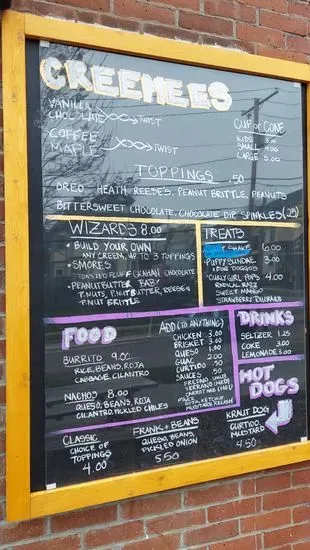 CREEMEES
VANILLA
CHOCOLATE TWIST
COFFEE
MAPLE TWIST
CUP OR CONE
KIDS
SMALL 4.00
LARGE 5.00
TOPPINGS .50
OREO HEATH REESE'S, PEANUT BRITTLE, PEANUTS
BITTERSWEET CHOCOLATE, CHOCOLATE DIP, SPINKLES (.25)
WIZARDS 8.00
• BUILD YOUR OWN
ANY CREEM, UP TO 3 TOPPINGS
• SMORES
TOASTED FLUFF GRAHAM CHOCOLATE
• PEANUTBUTTER BABY
P.NUTS, P.NUTBUTTER, REESES
P.NUT BRITTLE
TREATS
SHAKE 6.00
• PUPPY SUNDAE 3.00
FOR DOGGOS
• CURLY GIRL POPS 4.00
RADICAL RAZZ
SWEET MANGO
STRAWBERRY RHUBARB
FOOD
BURRITO 9.00
RICE, BEANS, ROJA
CABBAGE, CILANTRO
NACHOS 8.00
QUESO, BEANS, ROJA
CILANTRO, PICKLED CHILES
ADD (TO ANYTHING)
CHICKEN 3.00
BRISKET 3.00
QUESO 1.00
GUAC 2.00
CURTIDO .50
SAUCES .50
FRESNO (MED)
SERRANO (MED)
KETCHUP
MUSTARD, RELISH
DRINKS
SELTZER 1.25
COKE 3.00
LEMONADE 3.00
HOT
DOGS
CLASSIC
CHOICE OF
TOPPINGS
4.00
FRANK + BEANS
QUESO, BEANS,
PICKLED ONION
5.50
KRAUT DOG
CURTIDO
MUSTARD
4.50